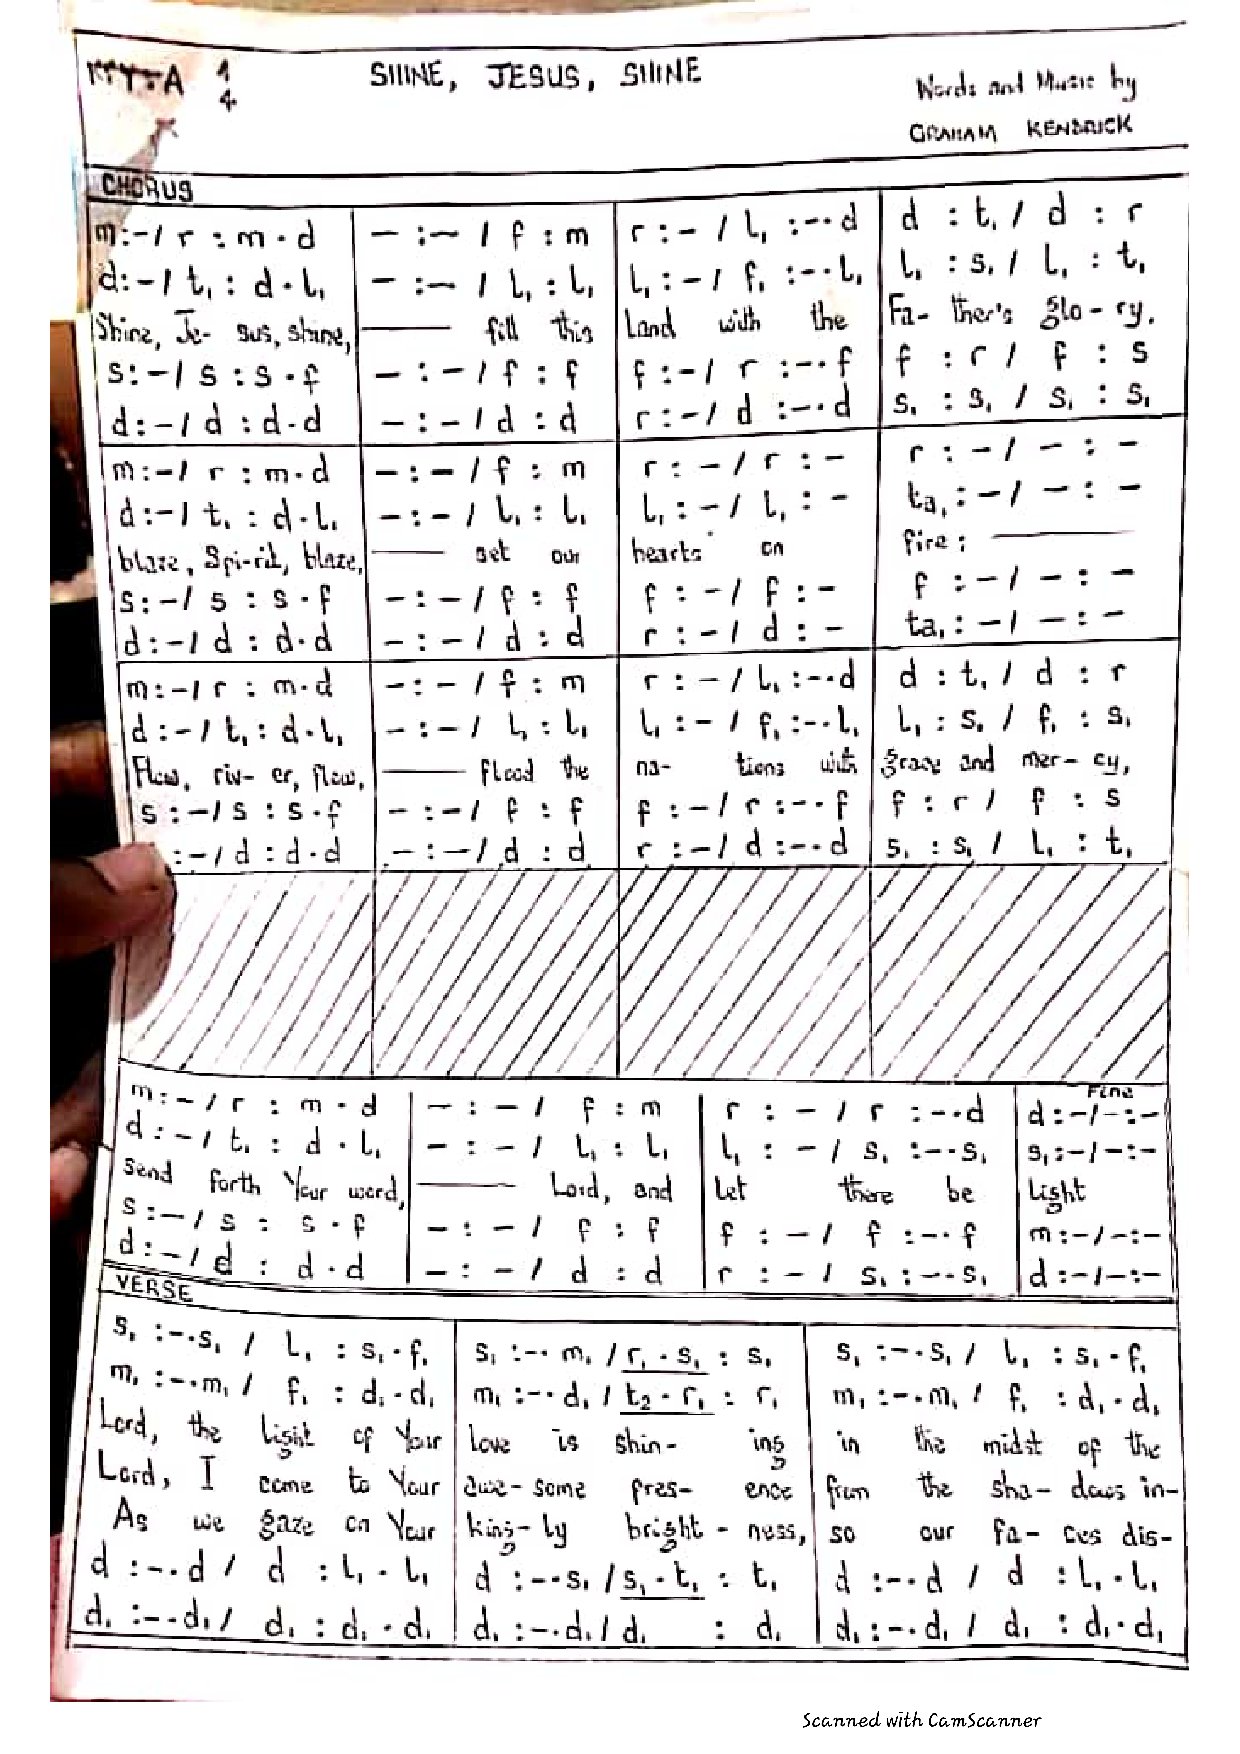 KEY:A 4/4
SHINE, JESUS, SHINE
Words and Music by
GRAHAM KENDRICK
CHORUS
m:-/ r : m . d | - :- / f : m | r : - / l₁ :-. d | d : t₁ / d : r
d:-/ t₁ : d . l₁ | - :- / l₁ : l₁ | l₁ : - / f₁ :-. l₁ | l₁ : s₁ / l₁ : t₁
Shine, Je- sus, shine, ___ fill this Land with the Fa- ther's glo-ry.
s:-/ s : s . f | - : - / f : f | f :-/ r :-. f | f : r / f : s
d:-/ d : d . d | - : - / d : d | r :-/ d :-. d | s₁ : s₁ / s₁ : s₁
m:-/ r : m . d | - : - / f : m | r : - / r : - | r : - / - : -
d:-/ t₁ : d . l₁ | - : - / l₁ : l₁ | l₁ : - / l₁ : - | ta₁ : - / - : -
blaze, Spi-rit, blaze, ___ set our hearts on fire; ___
s:-/ s : s . f | - : - / f : f | f : - / f : - | f : - / - : -
d:-/ d : d . d | - : - / d : d | r : - / d : - | ta₁ : - / - : -
m:-/ r : m . d | - : - / f : m | r : - / l₁ :-. d | d : t₁ / d : r
d:-/ t₁ : d . l₁ | - : - / l₁ : l₁ | l₁ : - / f₁ :-. l₁ | l₁ : s₁ / f₁ : s₁
Flow, riv- er, flow, ___ flood the na- tions with grace and mer- cy,
s :-/ s : s . f | - : - / f : f | f : - / r :-. f | f : r / f : s
:-/ d : d . d | - : - / d : d | r : - / d :-. d | s₁ : s₁ / l₁ : t₁
Fine
m : - / r : m . d | - : - / f : m | r : - / r :-. d | d:-/-:-
d : - / t₁ : d . l₁ | - : - / l₁ : l₁ | l₁ : - / s₁ :-. s₁ | s₁:-/-:-
Send forth Your word, ___ Lord, and Let there be light
s : - / s : s . f | - : - / f : f | f : - / f :-. f | m:-/-:-
d : - / d : d . d | - : - / d : d | r : - / s₁ :-. s₁ | d:-/-:-
VERSE
s₁ :-. s₁ / l₁ : s₁ . f₁ | s₁ :-. m₁ / r₁ . s₁ : s₁ | s₁ :-. s₁ / l₁ : s₁ . f₁
m₁ :-. m₁ / f₁ : d₁ . d₁ | m₁ :-. d₁ / t₂ . r₁ : r₁ | m₁ :-. m₁ / f₁ : d₁ . d₁
Lord, the light of Your love is shin- ing in the midst of the
Lord, I come to Your awe-some pres- ence from the sha- dows in-
As we gaze on Your king-ly bright - ness, so our fa- ces dis-
d :-. d / d : l₁ . l₁ | d :-. s₁ / s₁ . t₁ : t₁ | d :-. d / d : l₁ . l₁
d₁ :-. d₁ / d₁ : d₁ . d₁ | d₁ :-. d₁ / d₁ : d₁ | d₁ :-. d₁ / d₁ : d₁ . d₁
Scanned with CamScanner